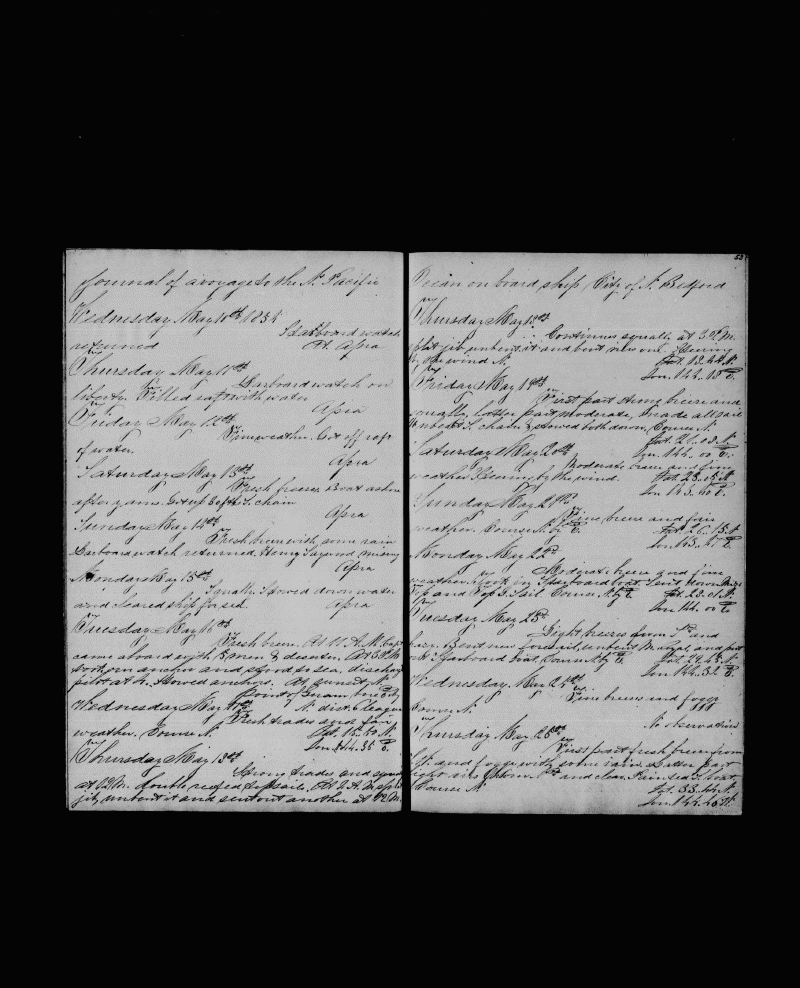 Journal of a voyage to the N. Pacific
Wednesday May 10th 1854
Starboard watch
returned At Apra
Thursday May 11th
Larboard watch on
liberty. Filled raft with water
Apra
Friday May 12th
Fine weather. Got off raft
of water. Apra
Saturday May 13th
Fresh breeze. Boat ashore
after yams. Got up 30 fth S. chain
Apra
Sunday May 14th
Fresh breeze with some rain
Larboard watch returned. Henry missing
Apra
Monday May 15th
Squally. Stowed down water
and cleared ship for sea. Apra
Tuesday May 16th
Fresh breeze. At 11 A.M. Capt
came aboard with men & deserter. At 3 P.M.
took our anchor and stood to sea. discharged
pilot at 4. Stowed anchors. At sunset N.
point of Guam bore E by
N. dist. leagues
Wednesday May 17th
Fresh trades and fair
weather. Course N.
Lon. 144.35 E.
Thursday May 18th
Strong trades and squally
at 12 M. double reefed topsails. At 7 A.M. split
jib, unbent it and sent out another at 12 M.
53
Ocean on board ship City of N. Bedford
Thursday May 18th
Continues squally at 3 P.M.
split jib unbent it and bent new one. Steering
by the wind N. Lat. 18.44 N.
Lon. 144.18 E.
Friday May 19th
First part strong breeze and
squally, latter part moderate, made all sail
Unbent S. chain & stowed both down. Course N.
Lat. 21.03 N.
Lon. 144.00 E.
Saturday May 20th
Moderate breeze and fine
weather. Steering by the wind. N.
Lon 143.50 E.
Sunday May 21st
Fine breeze and fair
weather. Course N. by E. Lat. 26.13 N.
E.
Monday May 22d
Moderate breeze and fine
weather. Took in Starboard boat. Sent down
and Top G. Sail. Course N. by E. Lat. 28.01 N.
Lon. 144.00 E.
Tuesday May 23d
Light breezes from Sd and
Bent new foresail, unbent and put
Starboard boat. Course N. by E. Lat. 29.43 N.
Lon. 144.32 E.
Wednesday May 24th
Fine breezes and foggy
Course N.
No observation
Thursday May 25th
First part fresh breeze from
and foggy with some rain. Latter part
light airs from Sd and clear.
Course N. Lat. 33.44 N.
Lon. 144.46